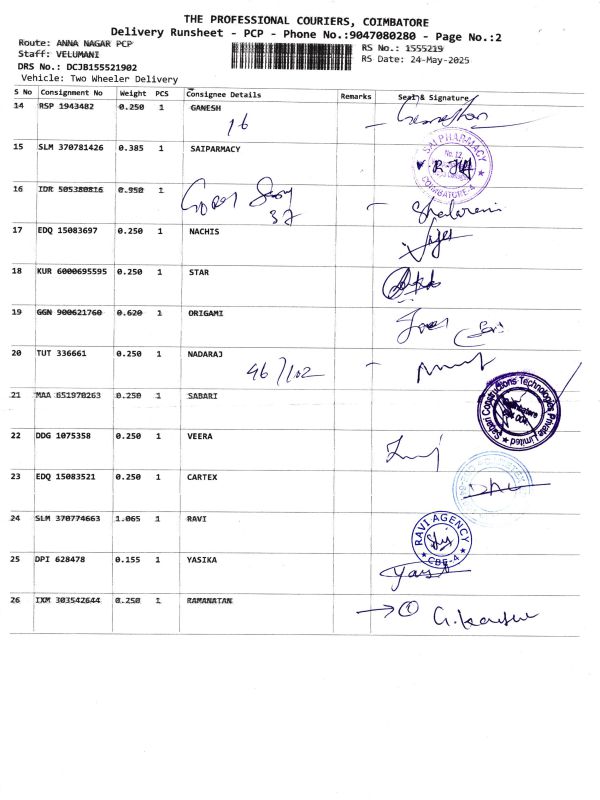 THE PROFESSIONAL COURIERS, COIMBATORE
Delivery Runsheet - PCP - Phone No.:9047080280 - Page No.:2
Route: ANNA NAGAR PCP
RS No.: 1555219
Staff: VELUMANI
RS Date: 24-May-2025
DRS No.: DCJB155521902
Vehicle: Two Wheeler Delivery
S No Consignment No Weight PCS Consignee Details Remarks Seal & Signature
14 RSP 1943482 0.250 1 GANESH
16
15 SLM 370781426 0.385 1 SAIPARMACY
SAI PHARMACY
No.12
COIMBATORE-4
16 IDR 505380816 0.950 1
37
17 EDQ 15083697 0.250 1 NACHIS
18 KUR 6000695595 0.250 1 STAR
19 GGN 900621760 0.620 1 ORIGAMI
20 TUT 336661 0.250 1 NADARAJ
46/102
21 MAA 651970263 0.250 1 SABARI
Sabari Constructions Technologies Private Limited
Coimbatore
22 DDG 1075358 0.250 1 VEERA
23 EDQ 15083521 0.250 1 CARTEX
24 SLM 370774663 1.065 1 RAVI
RAVI AGENCY
CBE-4
25 DPI 628478 0.155 1 YASIKA
26 IXM 303542644 0.250 1 RAMANATAN